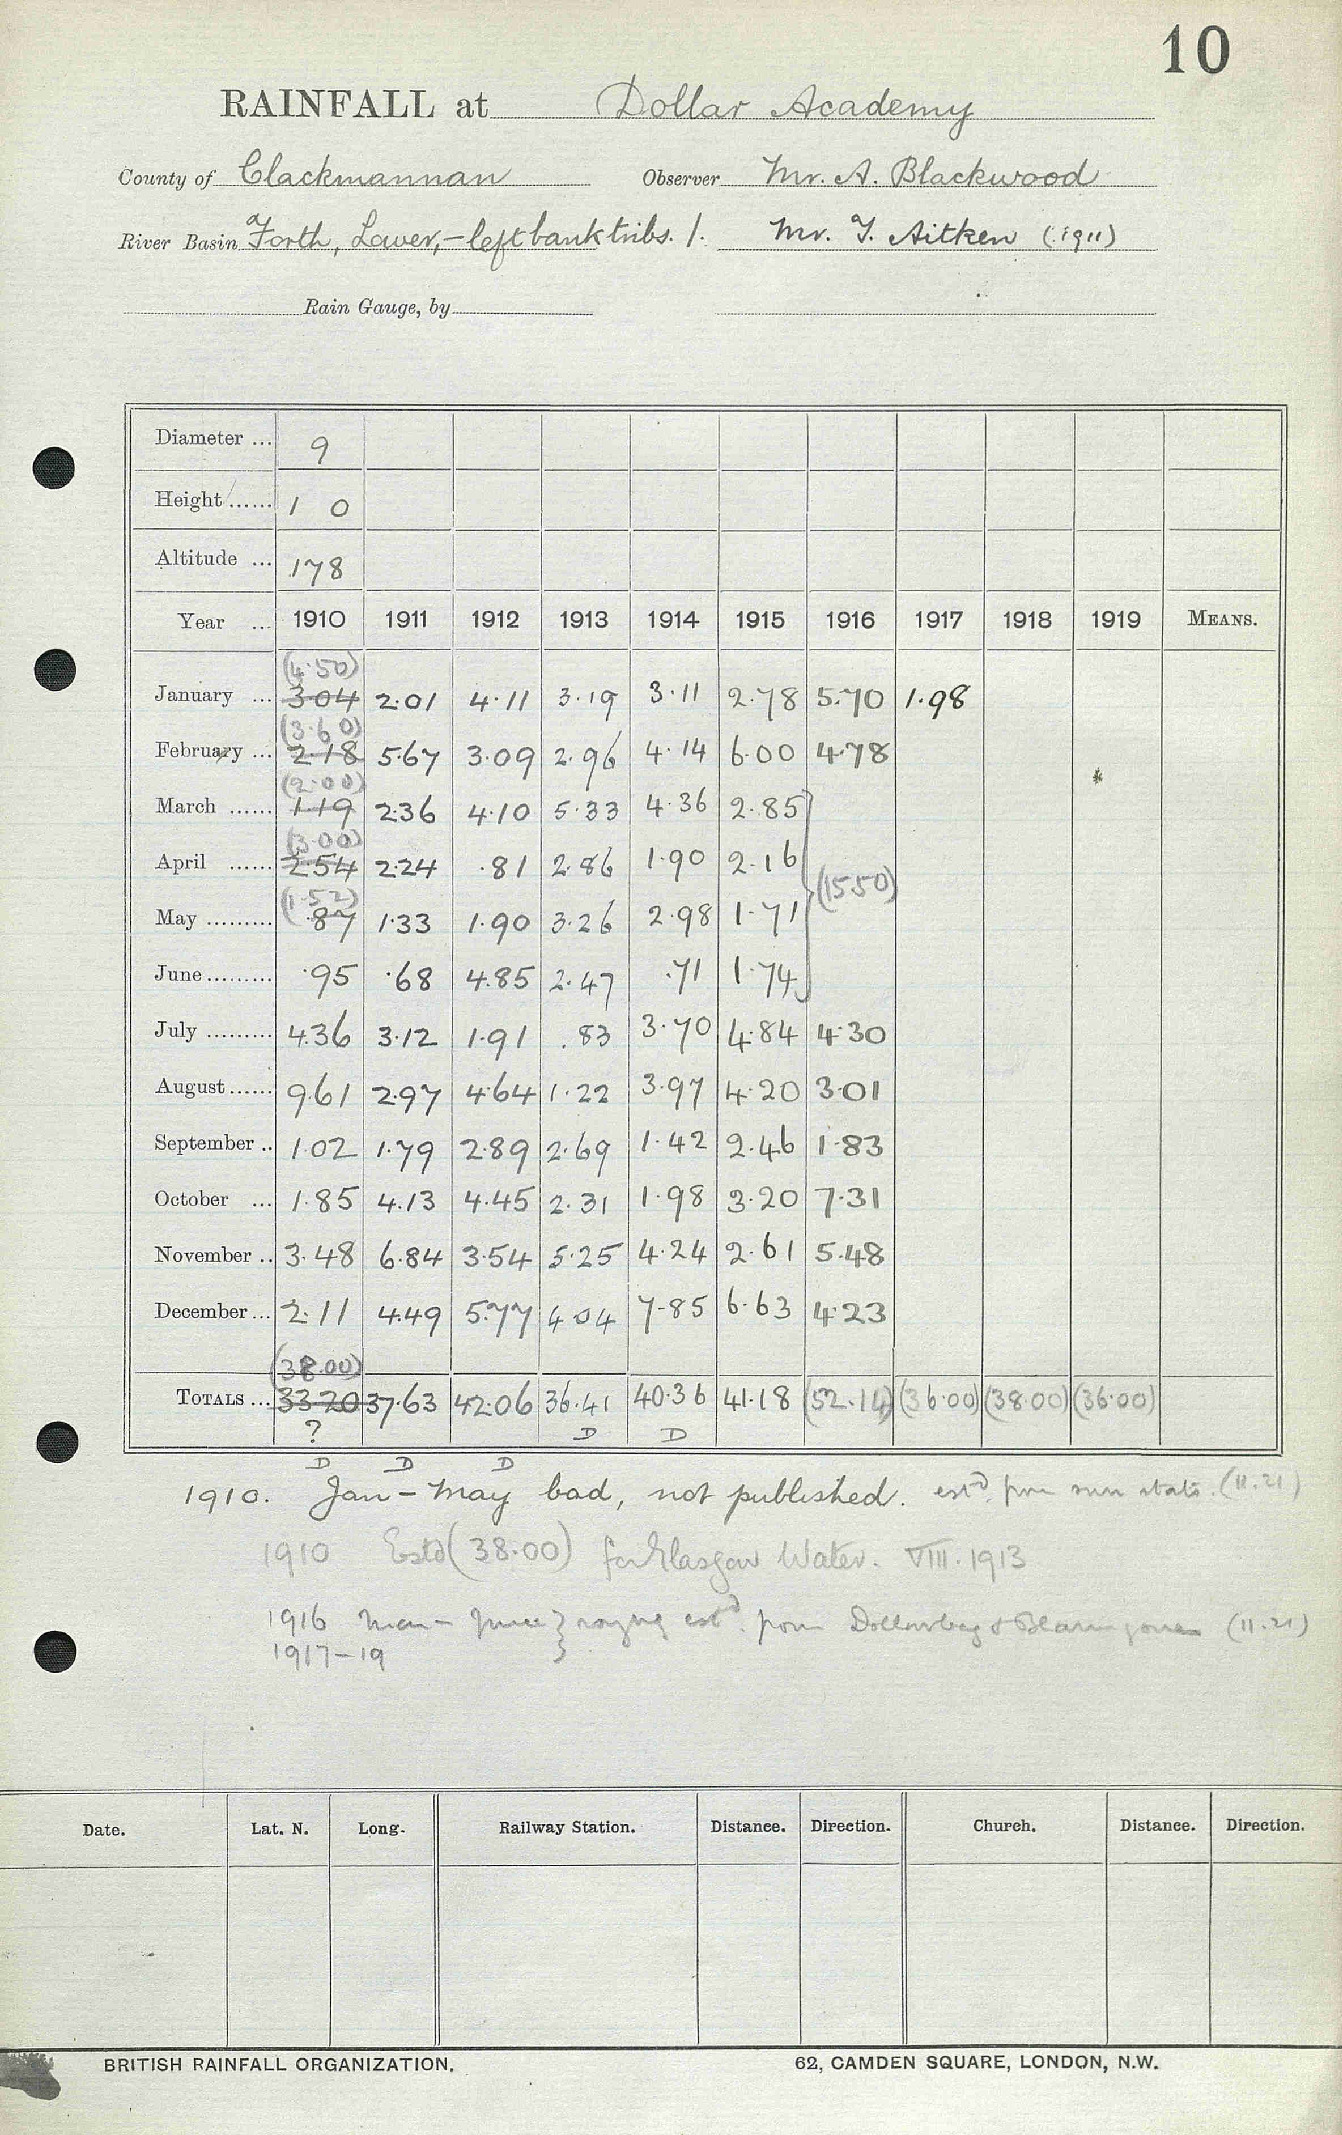 10
RAINFALL at Dollar Academy
County of Clackmannan Observer Mr. A. Blackwood
River Basin Forth, Lower,-left bank tribs. 1. Mr. T. Aitken (1911)
Rain Gauge, by
Diameter ... 9
Height ...... 1 0
Altitude ... 178
Year ... 1910 1911 1912 1913 1914 1915 1916 1917 1918 1919 MEANS.
(4.50)
January ... 3.04 2.01 4.11 3.19 3.11 2.78 5.70 1.98
(3.60)
February ... 2.18 5.67 3.09 2.96 4.14 6.00 4.78
(2.00)
March ...... 1.19 2.36 4.10 5.33 4.36 2.85
(3.00)
April ...... 2.54 2.24 .81 2.86 1.90 2.16 (15.50)
(1.52)
May ......... .87 1.33 1.90 3.26 2.98 1.71
June ......... .95 .68 4.85 2.47 .71 1.74
July ......... 4.36 3.12 1.91 .83 3.70 4.84 4.30
August ...... 9.61 2.97 4.64 1.22 3.97 4.20 3.01
September .. 1.02 1.79 2.89 2.69 1.42 2.46 1.83
October ... 1.85 4.13 4.45 2.31 1.98 3.20 7.31
November .. 3.48 6.84 3.54 5.25 4.24 2.61 5.48
December ... 2.11 4.49 5.77 4.04 7.85 6.63 4.23
(38.00)
TOTALS ... 33.20 37.63 42.06 36.41 40.36 41.18 (52.14) (36.00) (38.00) (36.00)
? D D
D D D
1910. Jan - May bad, not published. estd. from (11.21)
1910 Estd (38.00) for Glasgow Water. VIII. 1913
1916 Mar - June } estd. from Dollarbeg & (11.21)
1917-19
Date. Lat. N. Long. Railway Station. Distance. Direction. Church. Distance. Direction.
BRITISH RAINFALL ORGANIZATION. 62, CAMDEN SQUARE, LONDON, N.W.